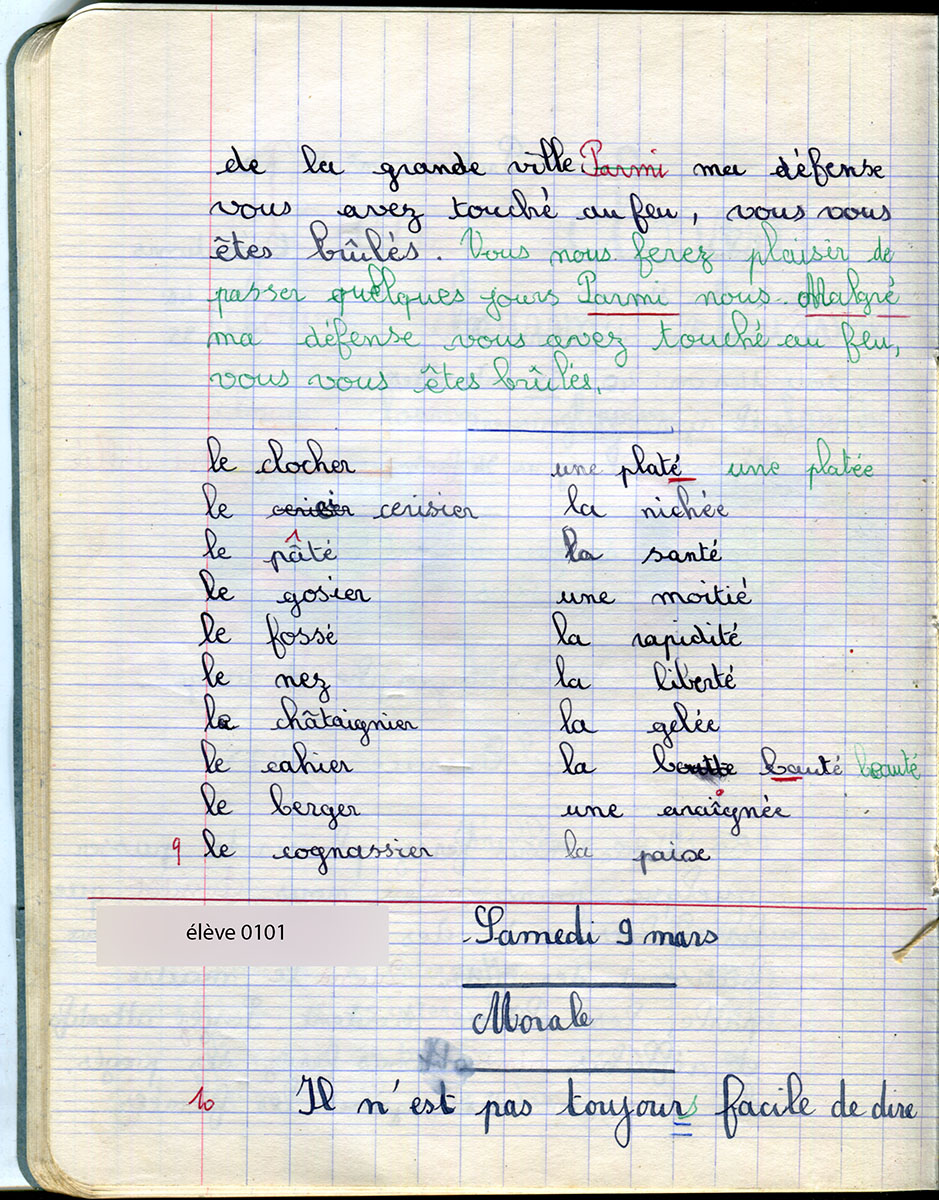 de la grande ville Parmi ma défense
vous avez touché au feu, vous vous
êtes brûlés. Vous nous ferez plaisir de
passer quelques jours Parmi nous. Malgré
ma défense vous avez touché au feu,
vous vous êtes brûlés.
le clocher une platé une platée
le cerisier la nichée
le pâté la santé
le gosier une moitié
le fossé la rapidité
le nez la liberté
le châtaignier la gelée
le cahier la bauté beauté
le berger une araignée
9 le cognassier la paix
élève 0101 Samedi 9 mars
Morale
10 Il n'est pas toujours facile de dire